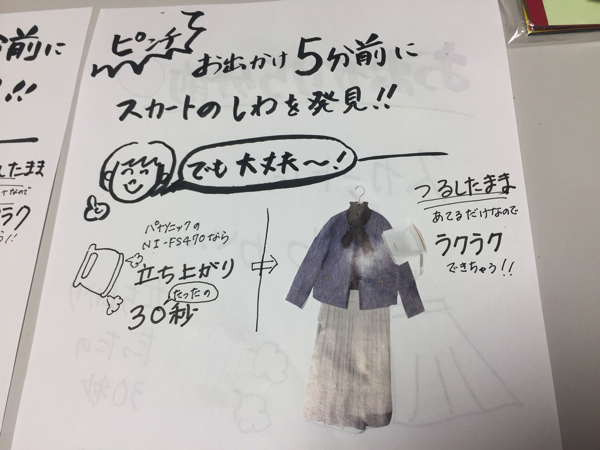 ピンチ
お出かけ5分前に
スカートのしわを発見!!
でも大丈夫〜!
パナソニックの
NI-FS470なら
立ち上がり
たったの
30秒
つるしたまま
あてるだけなので
ラクラク
できちゃう!!
前に
!!
したまま
なので
ラク